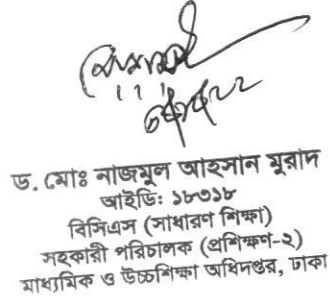 ড. মোঃ নাজমুল আহসান মুরাদ
আইডি: ১৮৩১৮
বিসিএস (সাধারণ শিক্ষা)
সহকারী পরিচালক (প্রশিক্ষণ-২)
মাধ্যমিক ও উচ্চশিক্ষা অধিদপ্তর, ঢাকা